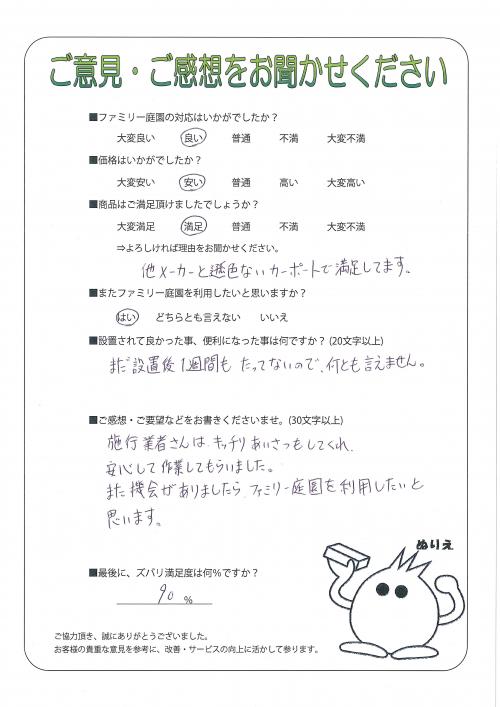 ご意見・ご感想をお聞かせください
■ファミリー庭園の対応はいかがでしたか？
大変良い 良い 普通 不満 大変不満
■価格はいかがでしたか？
大変安い 安い 普通 高い 大変高い
■商品はご満足頂けましたでしょうか？
大変満足 満足 普通 不満 大変不満
⇒よろしければ理由をお聞かせください。
他メーカーと遜色ないカーポートで満足してます。
■またファミリー庭園を利用したいと思いますか？
はい どちらとも言えない いいえ
■設置されて良かった事、便利になった事は何ですか？ (20文字以上)
まだ設置後1週間もたってないので、何とも言えません。
■ご感想・ご要望などをお書きくださいませ。(30文字以上)
施行業者さんは、キッチリあいさつもしてくれ、
安心して作業してもらいました。
また機会がありましたら、ファミリー庭園を利用したいと
思います。
ぬりえ
■最後に、ズバリ満足度は何%ですか？
90 %
ご協力頂き、誠にありがとうございました。
お客様の貴重な意見を参考に、改善・サービスの向上に活かして参ります。